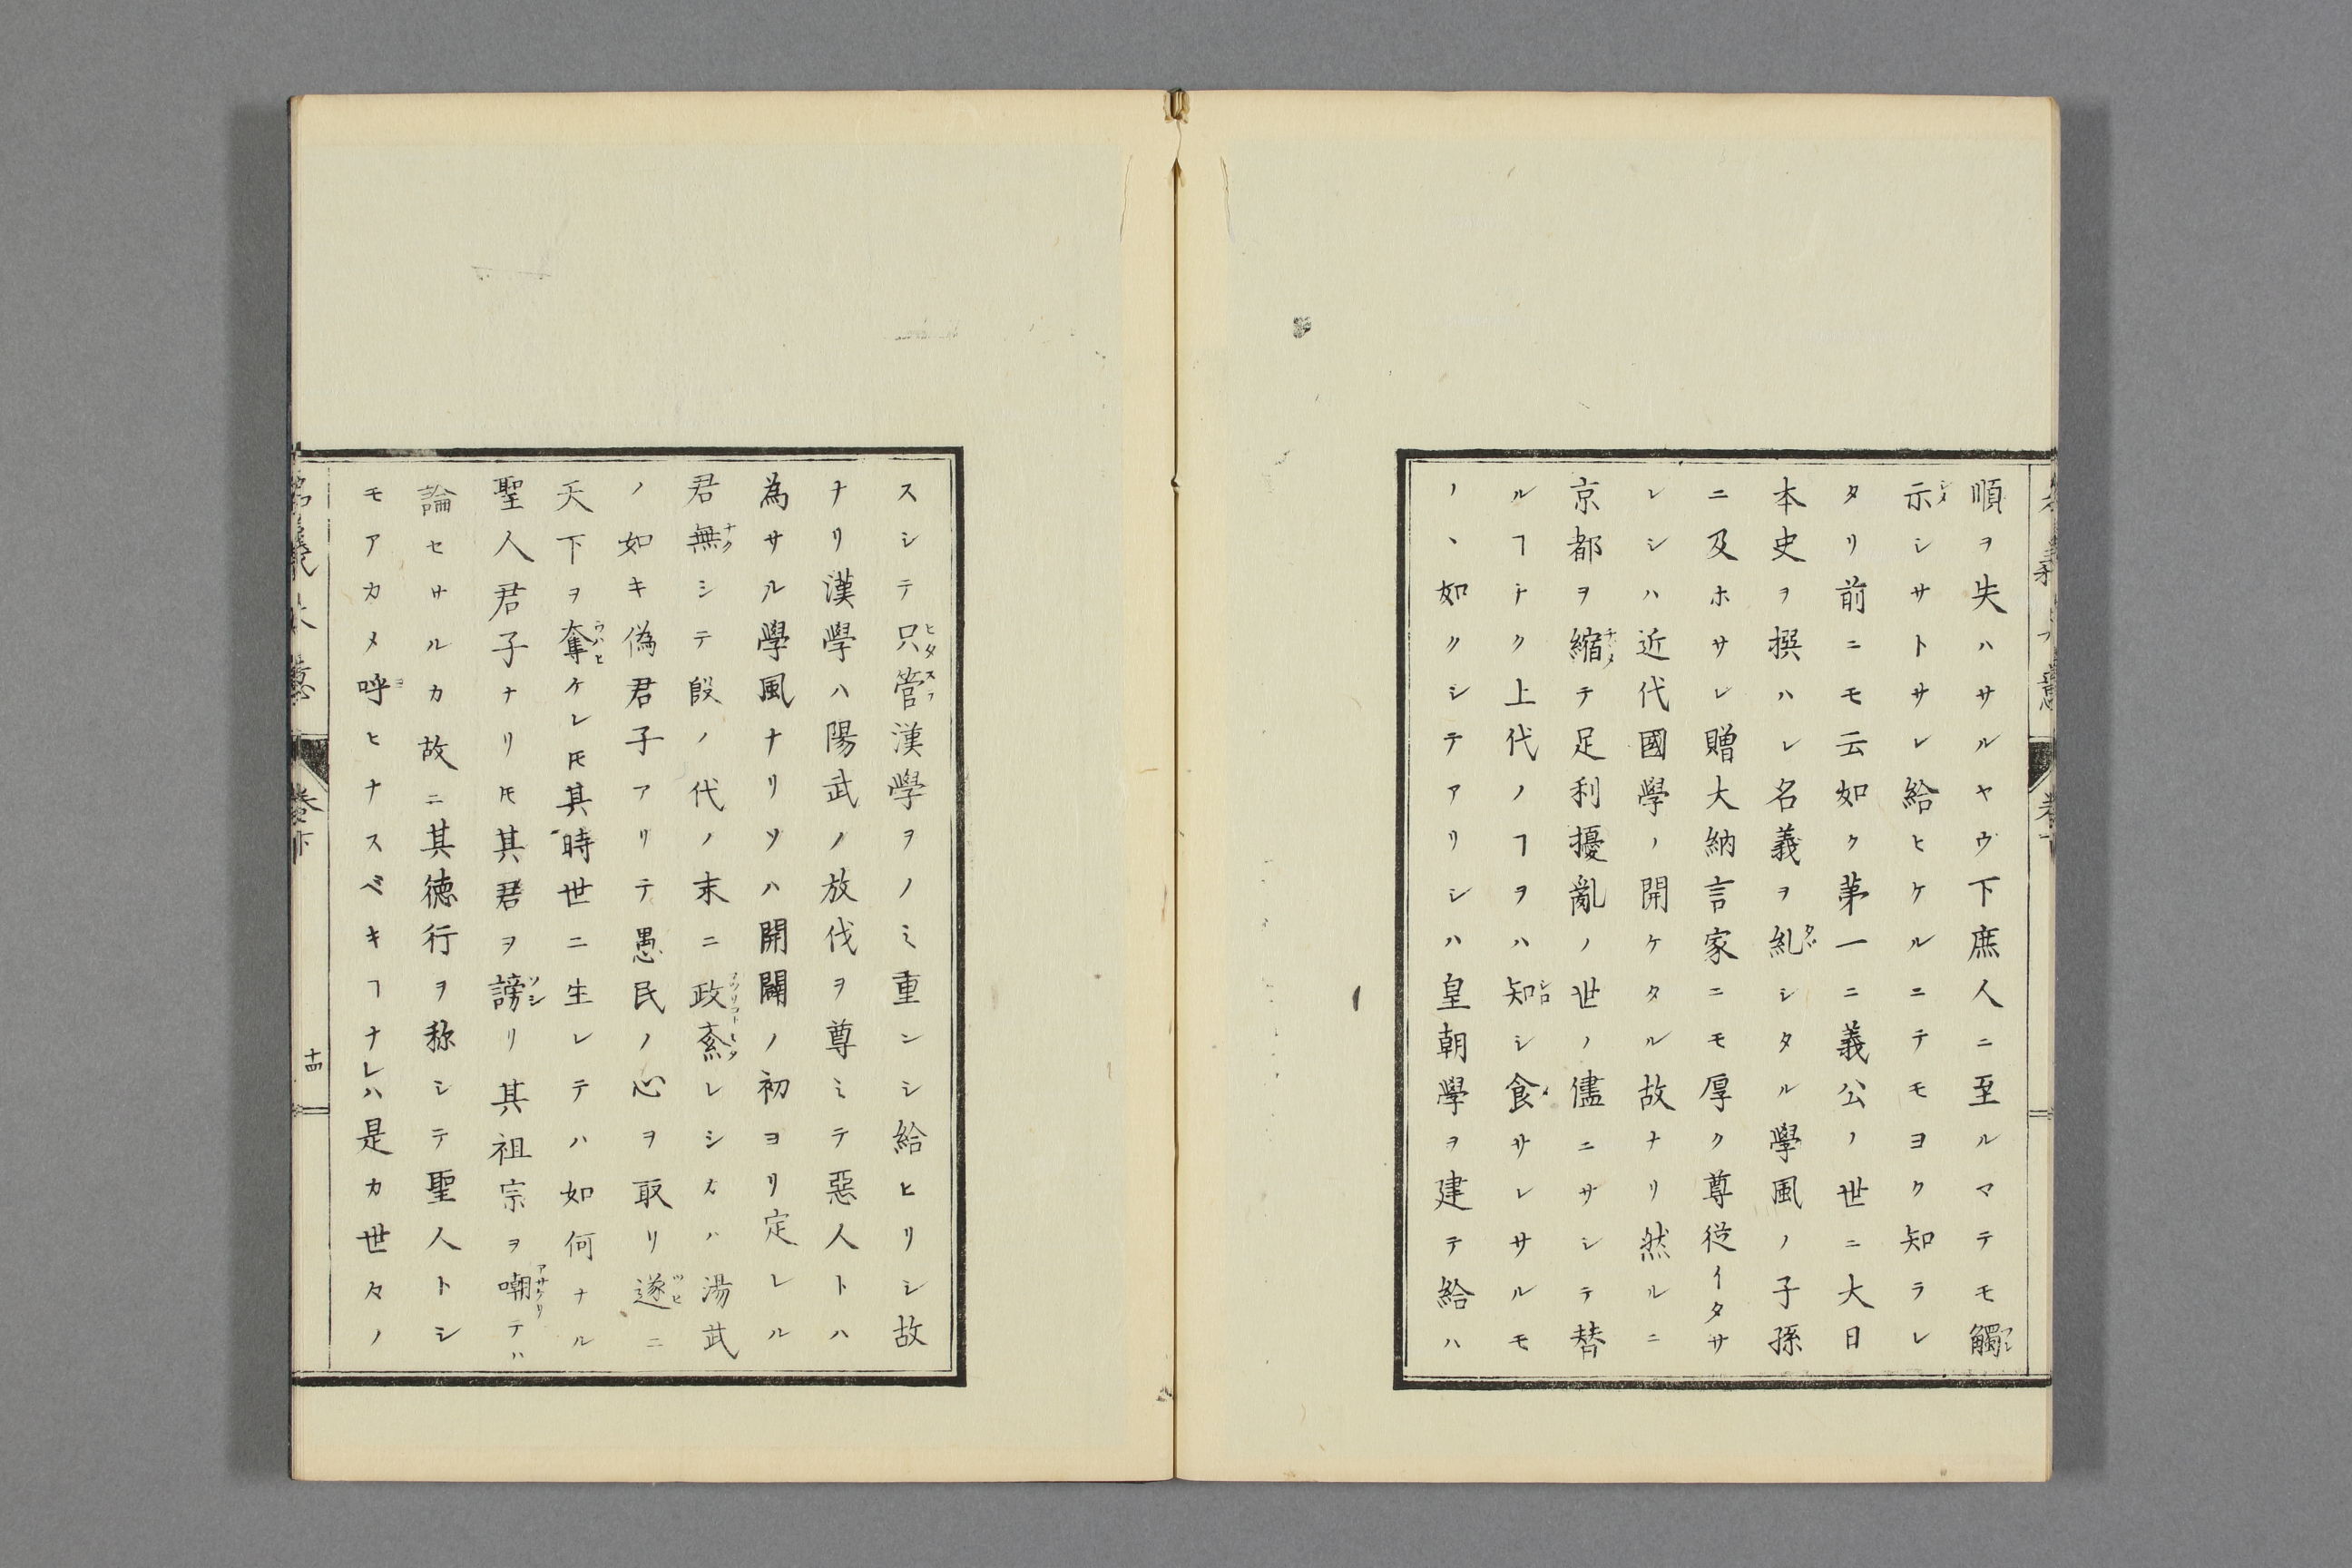 順ヲ失ハサルヤウ下庶人ニ至ルマテモ觸
示シサトサレ給ヒケルニテモヨク知ラレ
タリ前ニモ云如ク苐一ニ義公ノ世ニ大日
本史ヲ撰ハレ名義ヲ糺シタル學風ノ子孫
ニ及ホサレ贈大納言家ニモ厚ク尊從イタサ
レシハ近代國學ノ開ケタル故ナリ然ルニ
京都ヲ縮テ足利擾亂ノ世ノ儘ニサシテ替
ルヿナク上代ノヿヲハ知シ食サレサルモ
ノヽ如クシテアリシハ皇朝學ヲ建テ給ハ
スシテ只管漢學ヲノミ重ンシ給ヒリシ故
ナリ漢學ハ陽武ノ放伐ヲ尊ミテ惡人トハ
為サル學風ナリソハ開闢ノ初ヨリ定レル
君無シテ殷ノ代ノ末ニ政紊レシカハ湯武
ノ如キ偽君子アリテ愚民ノ心ヲ取リ遂ニ
天下ヲ奪ケレ𪜈其時世ニ生レテハ如何ナル
聖人君子ナリ𪜈其君ヲ謗リ其祖宗ヲ嘲テハ
論セサルカ故ニ其徳行ヲ称シテ聖人トシ
モアカメ呼ヒナスベキヿナレハ是カ世々ノ
名義大意
卷下
十四